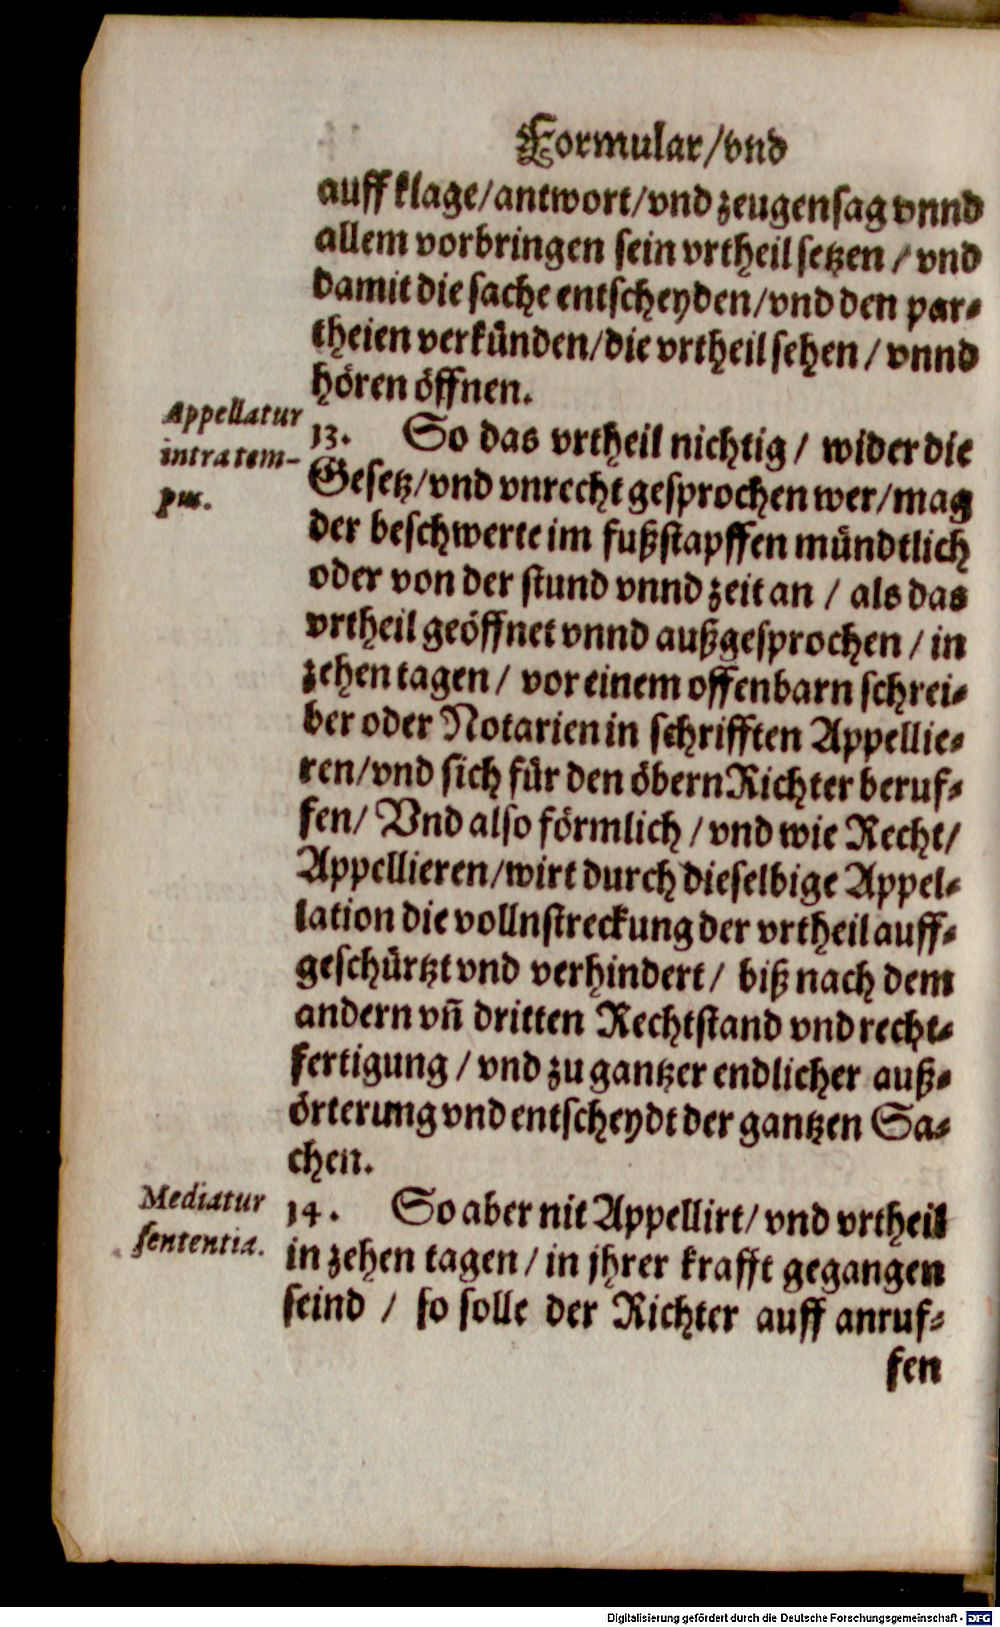 Formular/vnd
auff klage/antwort/vnd zeugensag vnnd
allem vorbringen sein vrtheil setzen / vnd
damit die sache entscheyden/vnd den par-
theien verkünden/die vrtheil sehen / vnnd
hören öffnen.
Appellatur
intra tem-
pus.
13. So das vrtheil nichtig / wider die
Gesetz/vnd vnrecht gesprochen wer/mag
der beschwerte im fußstapffen mündtlich
oder von der stund vnnd zeit an / als das
vrtheil geöffnet vnnd außgesprochen / in
zehen tagen / vor einem offenbarn schrei-
ber oder Notarien in schrifften Appellie-
ren/vnd sich für den öbern Richter beruf-
fen/ Vnd also förmlich / vnd wie Recht/
Appellieren/wirt durch dieselbige Appel-
lation die vollnstreckung der vrtheil auff-
geschürtzt vnd verhindert / biß nach dem
andern vñ dritten Rechtstand vnd recht-
fertigung / vnd zu gantzer endlicher auß-
örterung vnd entscheydt der gantzen Sa-
chen.
Mediatur
sententia.
14. So aber nit Appellirt/ vnd vrtheil
in zehen tagen / in jhrer krafft gegangen
seind / so solle der Richter auff anruf-
fen
Digitalisierung gefördert durch die Deutsche Forschungsgemeinschaft - DFG